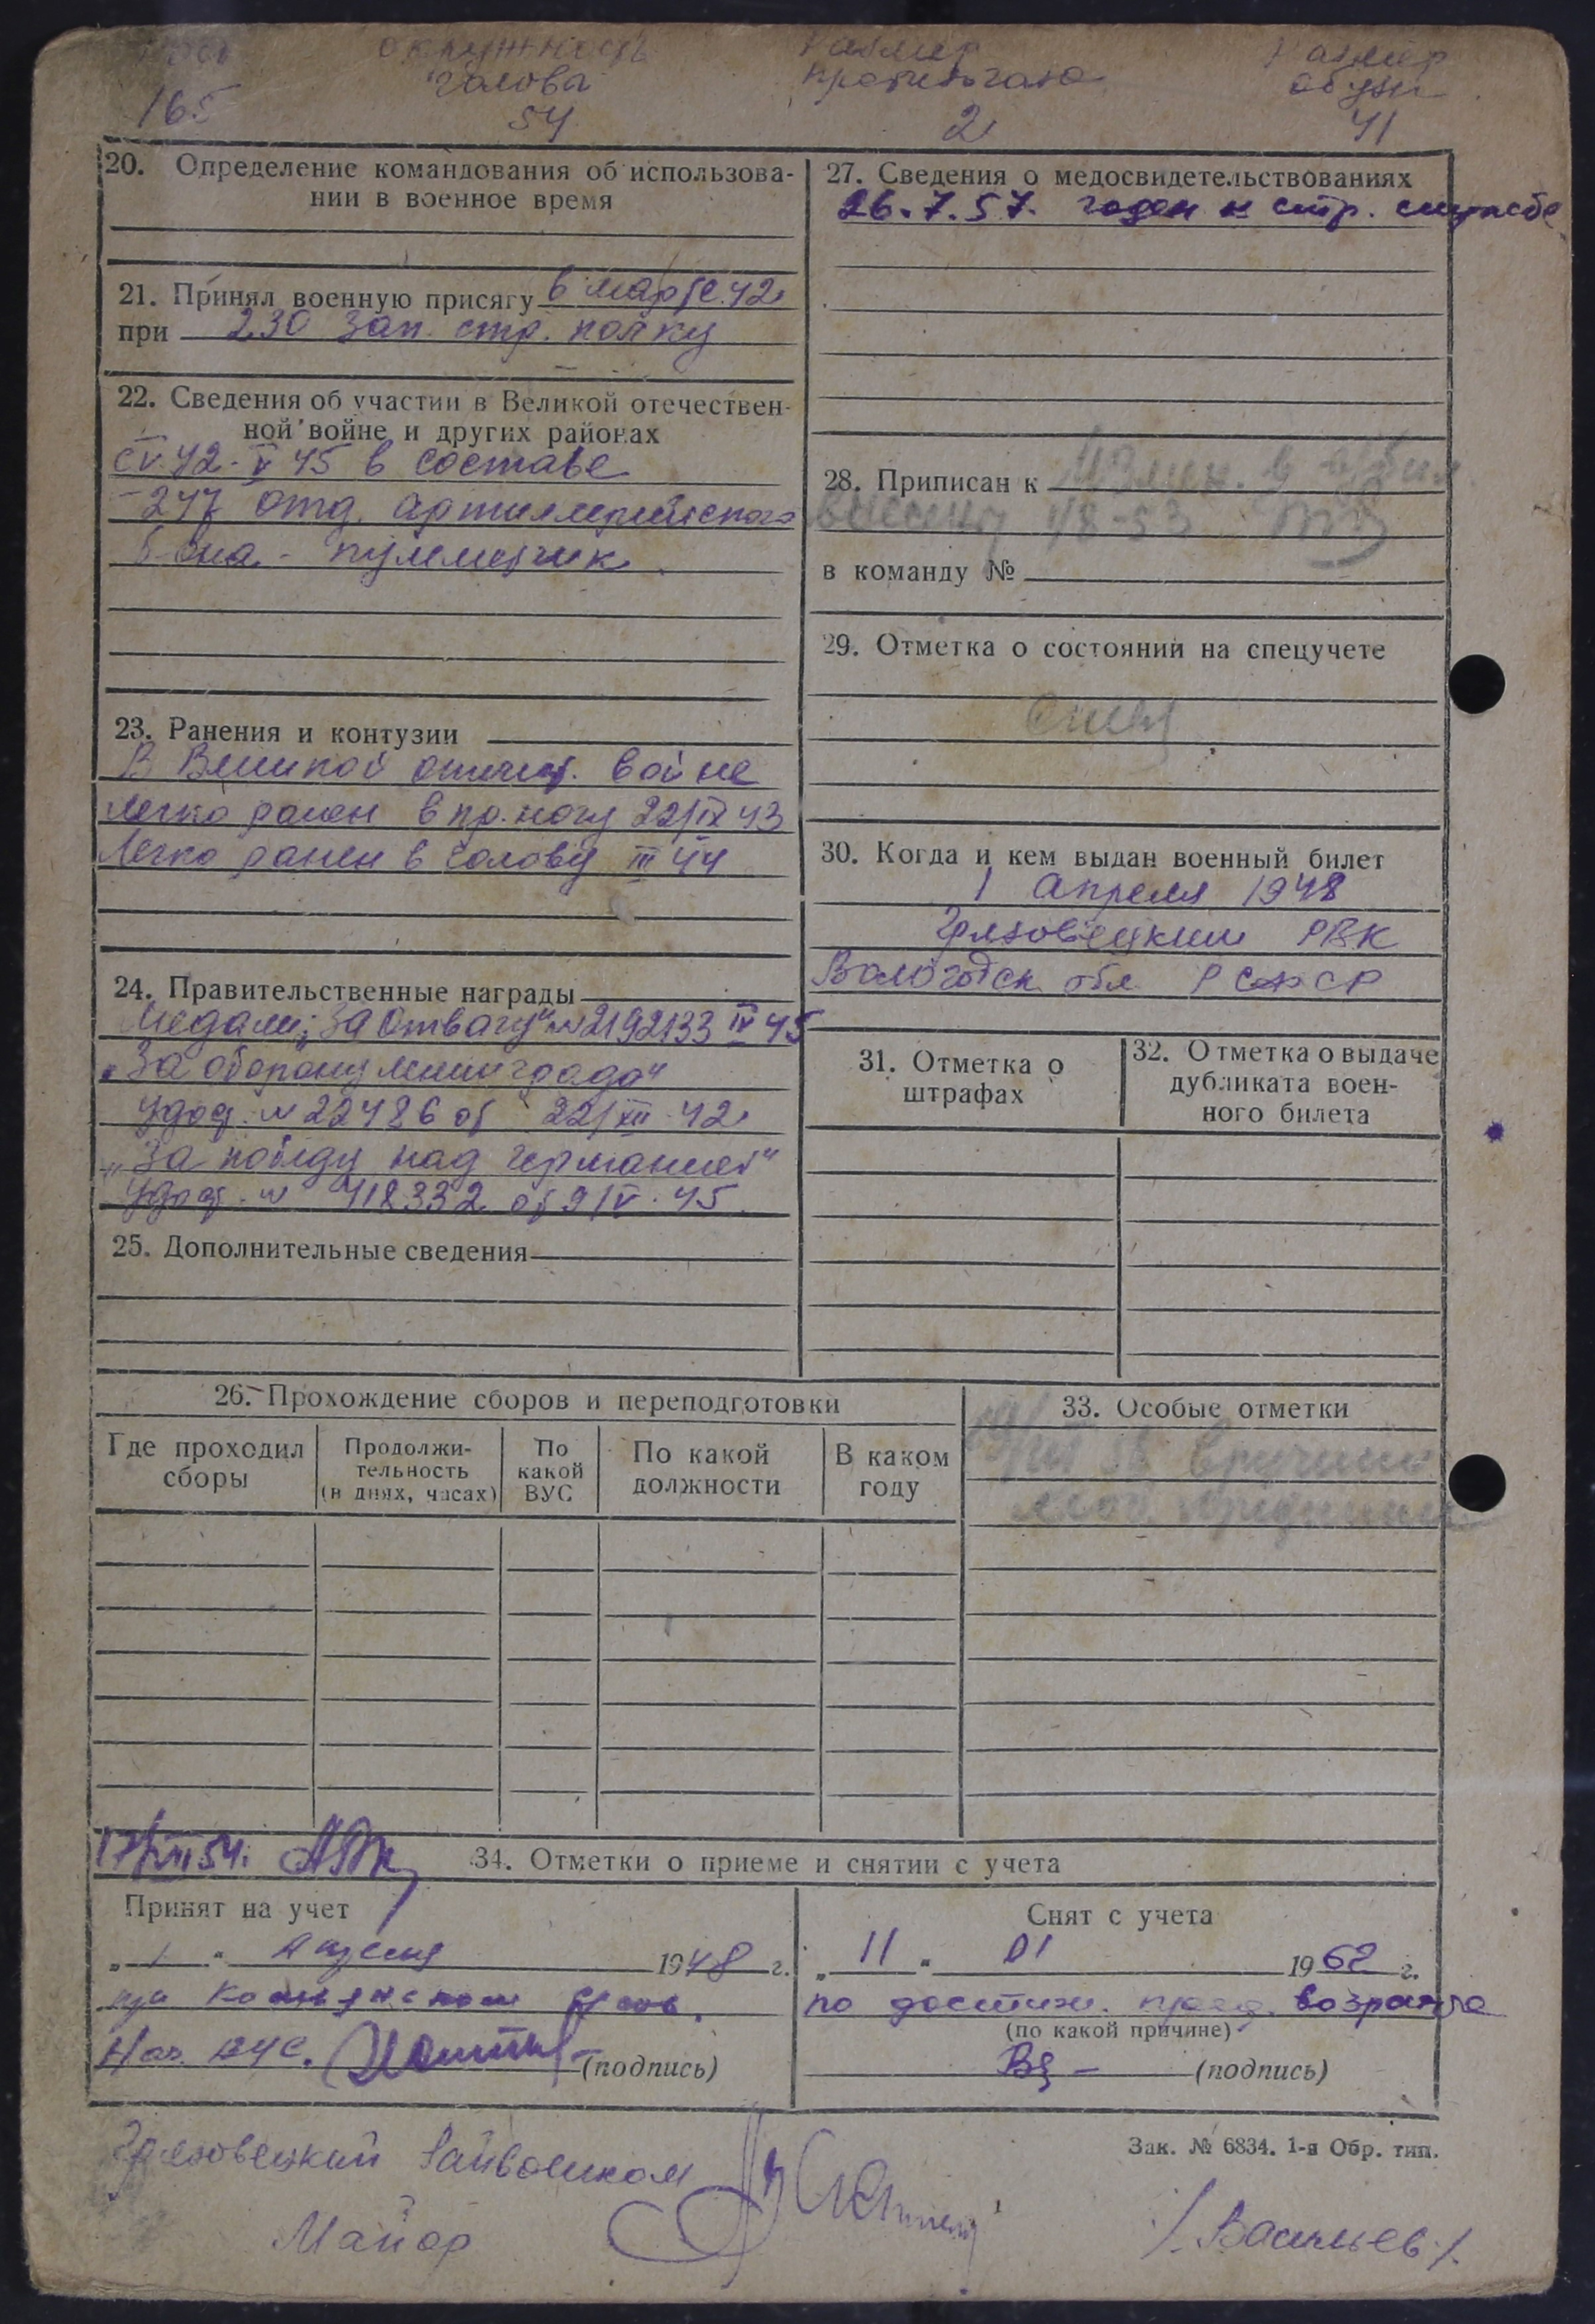 Рост окружность Размер Размер
головы противогаза обуви
165 54 2 41
20. Определение командования об использова-
нии в военное время
21. Принял военную присягу в марте 42
при 230 зап. стр. полку
22. Сведения об участии в Великой отечествен-
ной войне и других районах
с V.42 - V 45 в составе
- 247 отд. артиллерийского
б-она - пулеметчик
23. Ранения и контузии
В Великой отечест. войне
легко ранен в пр. ногу 22/IX 43
Легко ранен в голову III 44
24. Правительственные награды
Медали: „За Отвагу" № 2192133 IV 45
„За оборону Ленинграда"
удост. № 22486 от 22/XII 42
„За победу над Германией"
Удост. № 418332 от 9/V. 45
25. Дополнительные сведения
27. Сведения о медосвидетельствованиях
26.7.57. годен к стр. службе
28. Приписан к
1/8-53
в команду №
29. Отметка о состоянии на спецучете
30. Когда и кем выдан военный билет
1 Апреля 1948
Грязовецким РВК
Вологодск обл РСФСР
31. Отметка о
штрафах
32. Отметка о выдаче
дубликата воен-
ного билета
26. Прохождение сборов и переподготовки
Где проходил
сборы
Продолжи-
тельность
(в днях, часах)
По
какой
ВУС
По какой
должности
В каком
году
33. Особые отметки
34. Отметки о приеме и снятии с учета
Принят на учет
„ 1 " Апреля 1948 г.
Нач. ВУС. (подпись)
Снят с учета
„ 11 " 01 1962 г.
по достиж. пред. возраста
(по какой причине)
(подпись)
Зак. № 6834. 1-я Обр. тип.
Грязовецкий Райвоенком
Майор /Васильев/.